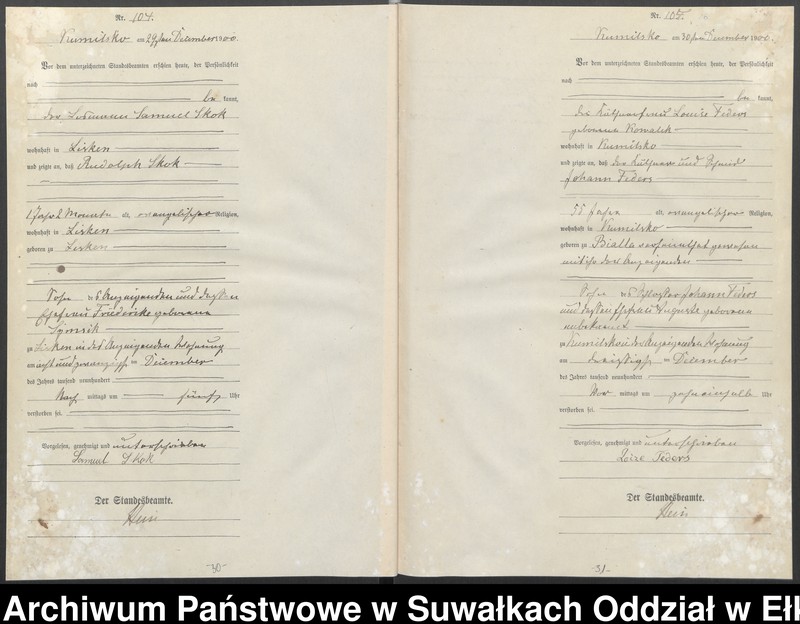 Nr. 104.
Kumilsko am 29ten December 1900.
Vor dem unterzeichneten Standesbeamten erschien heute, der Persönlichkeit
nach
be kannt,
der Losmann Samuel Skok
wohnhaft in Lisken
und zeigte an, daß Rudolph Skok
1 Jahr 2 Monate alt, evangelischer Religion,
wohnhaft in Lisken
geboren zu Lisken
Sohn des Anzeigenden und dessen
Ehefrau Friederike geborene
zu Lisken in des Anzeigenden Wohnung
am acht und zwanzigsten December
des Jahres tausend neunhundert
Nach mittags um fünf Uhr
verstorben sei.
Vorgelesen, genehmigt und unterschrieben
Samuel Skok
Der Standesbeamte.
-30-
Nr. 105.
Kumilsko am 30ten December 1900.
Vor dem unterzeichneten Standesbeamten erschien heute, der Persönlichkeit
nach
be kannt,
die Käthnerfrau Louise Fedors
geborene Kowalek
wohnhaft in Kumilsko
und zeigte an, daß der Käthner und
Johann Fedors
55 Jahre alt, evangelischer Religion,
wohnhaft in Kumilsko
geboren zu Bialla verheirathet gewesen
mit der Anzeigenden
Sohn des Johann Fedors
und dessen Ehefrau Auguste geborene
unbekannt
zu Kumilsko in der Anzeigenden Wohnung
am dreißigsten December
des Jahres tausend neunhundert
Vor mittags um zehneinhalb Uhr
verstorben sei.
Vorgelesen, genehmigt und unterschrieben
Loise Fedors
Der Standesbeamte.
-31-
Archiwum Państwowe w Suwałkach Oddział w Ełk